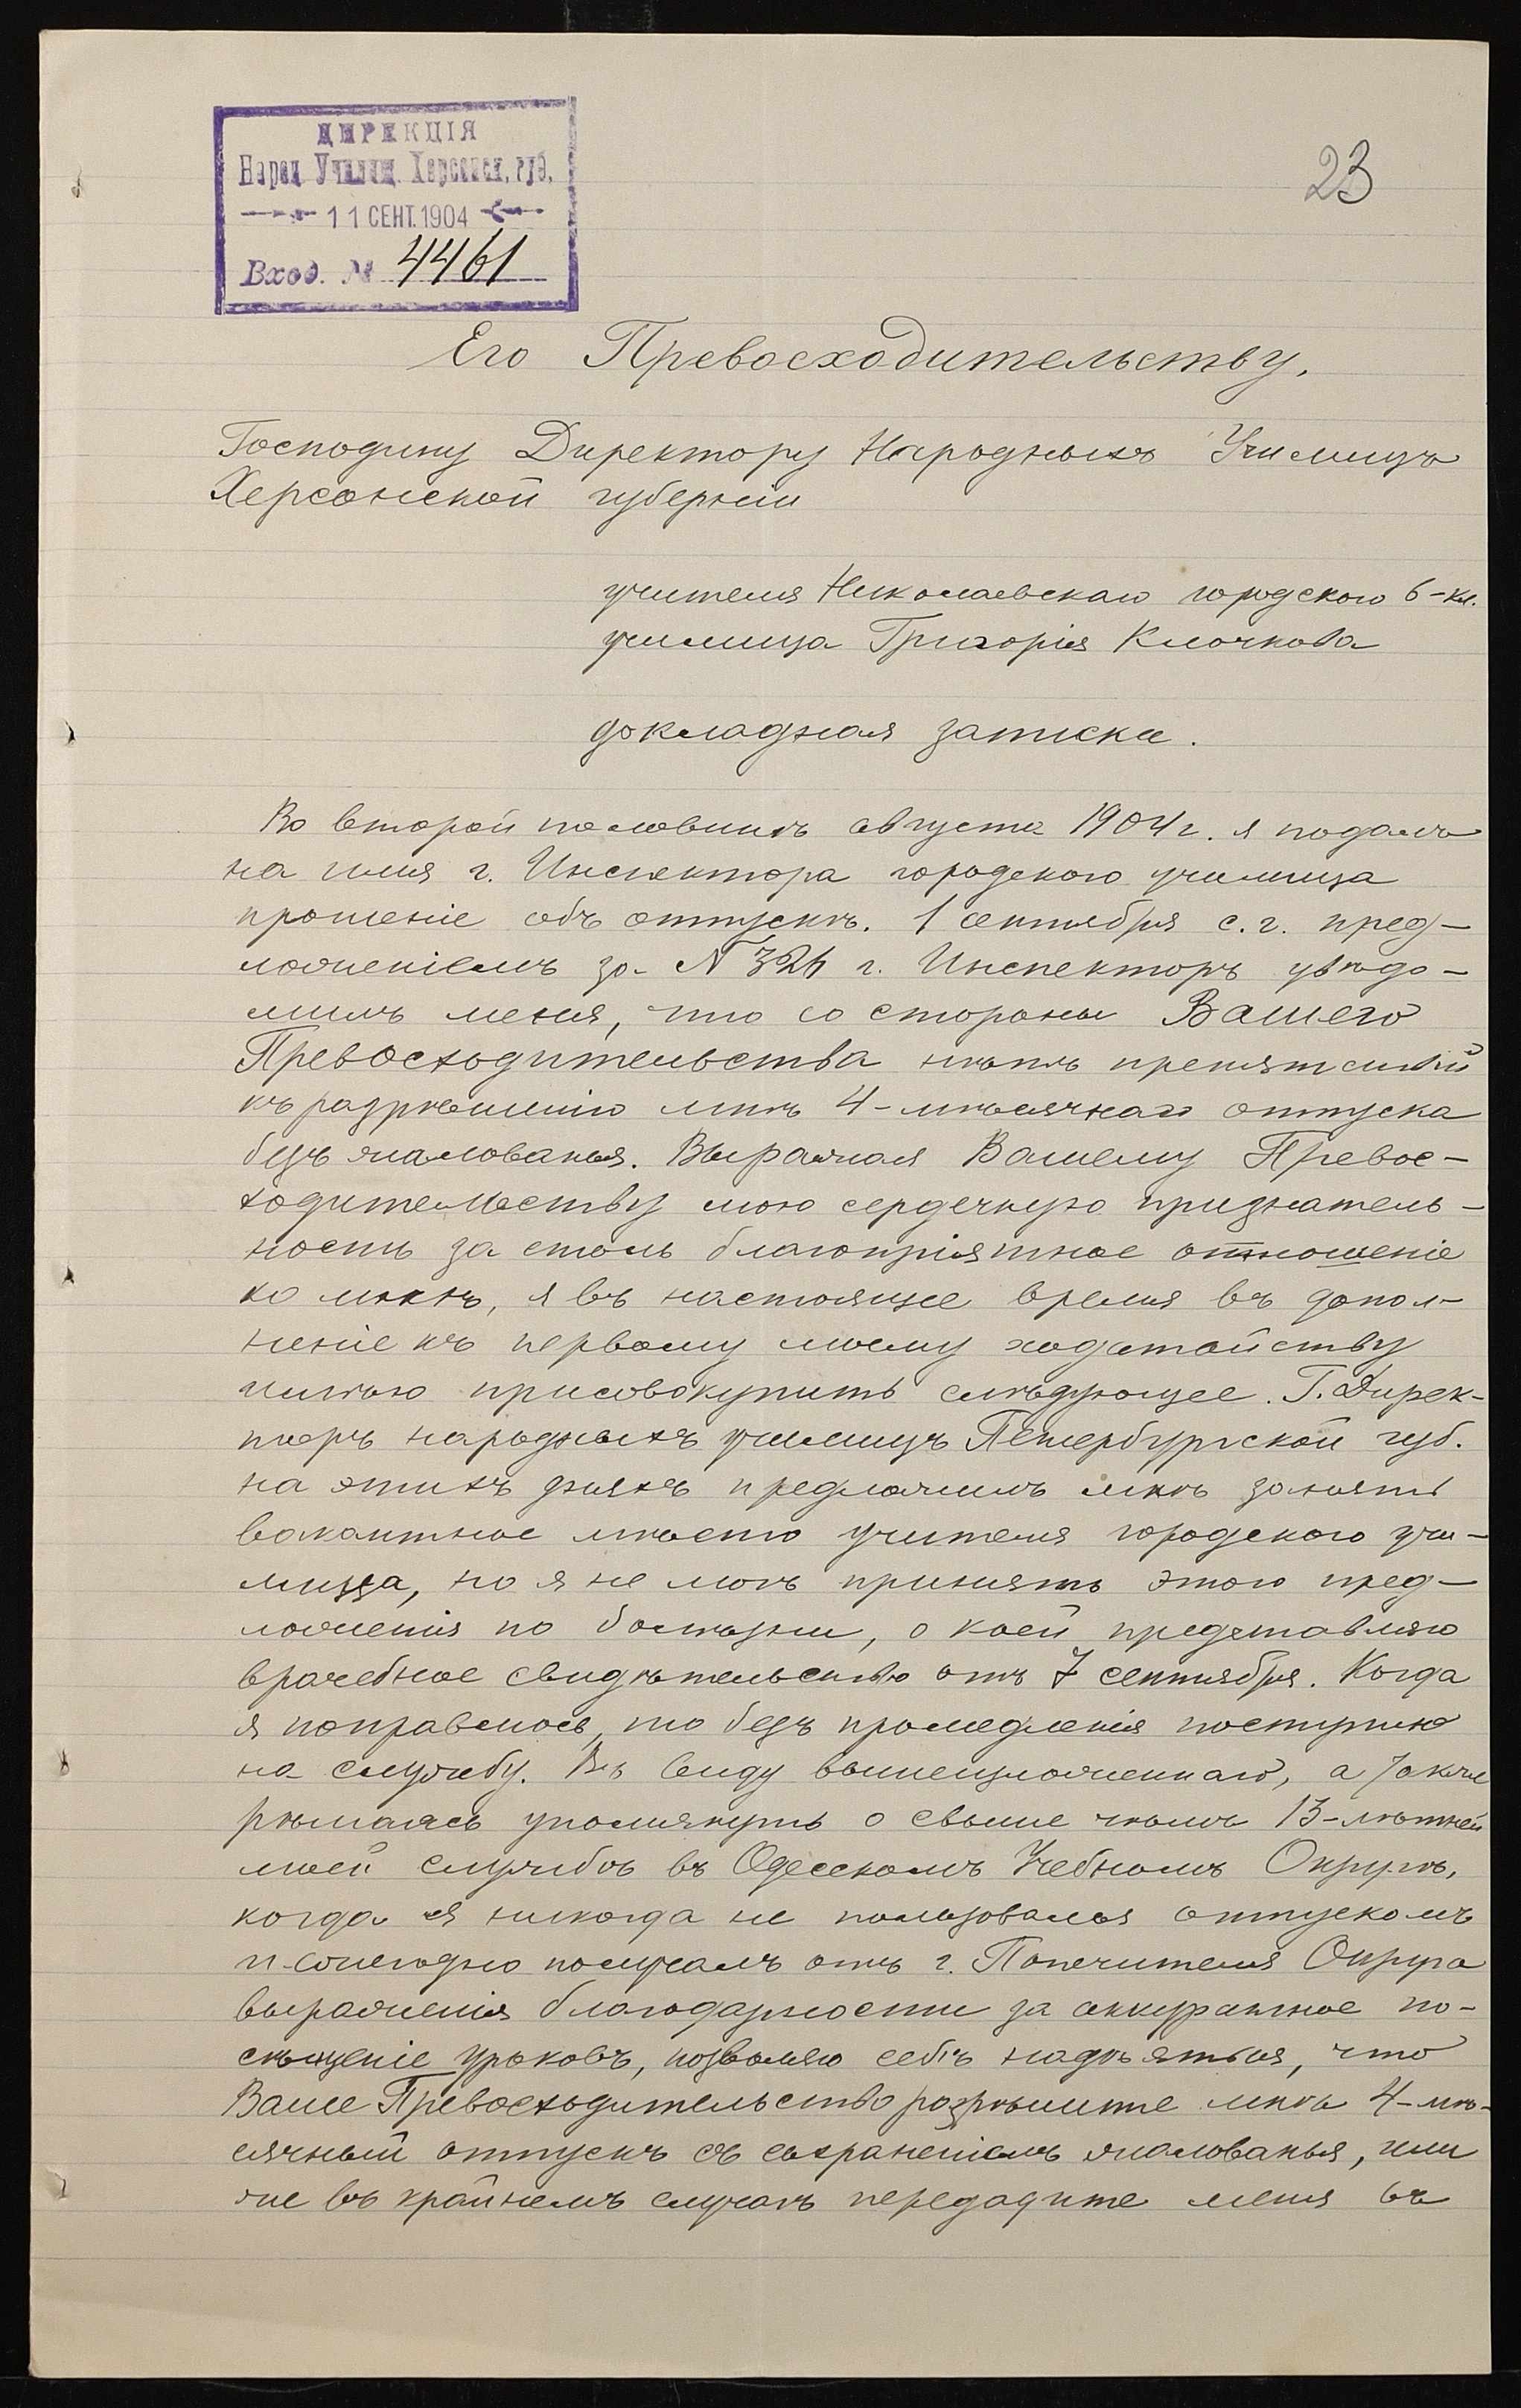 ДИРЕКЦІЯ
Народ. Училищ. Херсонск. губ.
11 СЕНТ. 1904
Вход. № 4461
23
Его Превосходительству,
Господину Директору Народныхъ Училищъ
Херсонской губерніи
учителя Николаевскаго городского 6-кл.
училища Григорія Клочкова
докладная записка.
Во второй половинѣ августа 1904 г. я подалъ
на имя г. Инспектора городского училища
прошеніе объ отпускѣ. 1 сентября с. г. пред-
ложеніемъ за № 326 г. Инспекторъ увѣдо-
милъ меня, что со стороны Вашего
Превосходительства нѣтъ препятствій
къ разрѣшенію мнѣ 4-мѣсячнаго отпуска
безъ жалованья. Выражая Вашему Превос-
ходительству мою сердечную признатель-
ность за столь благопріятное отношеніе
ко мнѣ, я въ настоящее время въ допол-
неніе къ первому моему ходатайству
имѣю присовокупить слѣдующее. Г. Дирек-
торъ народныхъ училищъ Петербургской губ.
на этихъ дняхъ предложилъ мнѣ занять
вакантное мѣсто учителя городского учи-
лища, но я не могъ принять этого пред-
ложенія по болѣзни, о коей представляю
врачебное свидѣтельство отъ 7 сентября. Когда
я поправлюсь, то безъ промедленія поступлю
на службу. Въ виду вышеизложеннаго, а также
рѣшаясь упомянуть о свыше чѣмъ 13-лѣтней
моей службѣ въ Одесскомъ Учебномъ Округѣ,
когда я никогда не пользовался отпускомъ
и ежегодно получалъ отъ г. Попечителя Округа
выраженія благодарности за аккуратное по-
сѣщеніе уроковъ, позволяю себѣ надѣяться, что
Ваше Превосходительство разрѣшите мнѣ 4-мѣ-
сячный отпускъ съ сохраненіемъ жалованья, или
же въ крайнемъ случаѣ передадите меня въ